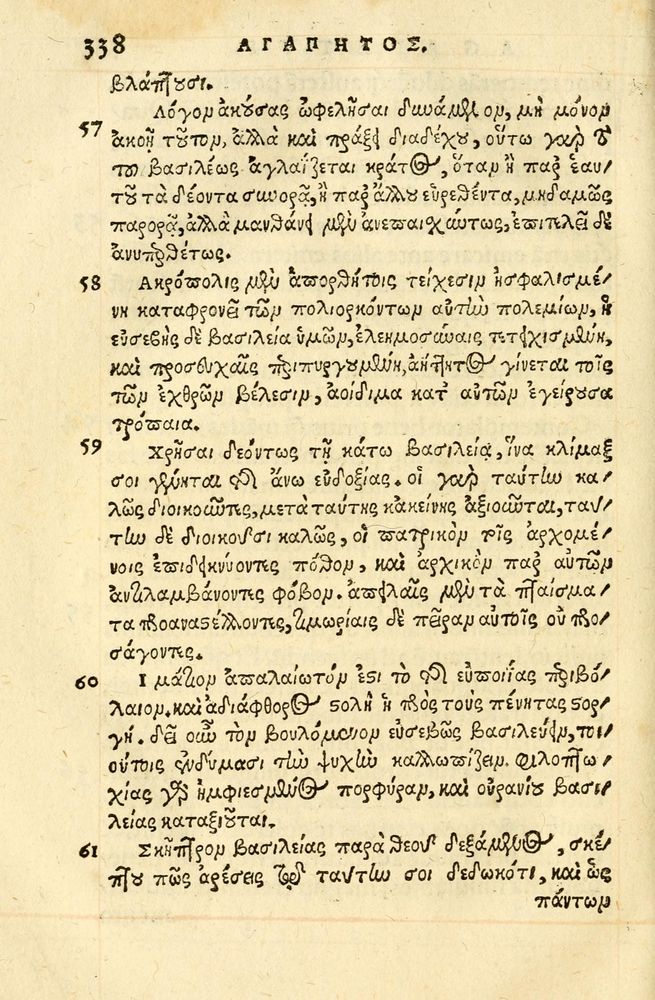 338 ΑΓΑΠΗΤΟΣ.
βλάπτουσι.
57 Λόγον ἀκούσας ὠφελῆσαι δυνάμενον, μὴ μόνον
ἀκοῇ τοῦτον, ἀλλὰ καὶ πράξει διαδέχου, οὕτω γὰρ τὸ
τοῦ βασιλέως ἀγλαΐζεται κράτος, ὅταν ἢ παρ' ἑαυ-
τοῦ τὰ δέοντα συνορᾷ, ἢ παρ' ἄλλου εὑρεθέντα, μηδαμῶς
παρορᾷ, ἀλλὰ μανθάνει μὲν ἀνεπαισχύντως, ἐπιτελεῖ δὲ
ἀνυπερθέτως.
58 Ἀκρόπολις μὲν ἀπορθήτοις τείχεσιν ἠσφαλισμέ-
νη καταφρονεῖ τῶν πολιορκόντων αὐτὴν πολεμίων, ἡ
εὐσεβὴς δὲ βασιλεία ὑμῶν, ἐλεημοσύναις τετειχισμένη,
καὶ προσευχαῖς πεπυργωμένη, ἀήττητος γίνεται τοῖς
τῶν ἐχθρῶν βέλεσιν, ἀοίδιμα κατ' αὐτῶν ἐγείρουσα
τρόπαια.
59 Χρῆσαι δεόντως τῇ κάτω βασιλείᾳ, ἵνα κλίμαξ
σοι γένηται τῆς ἄνω εὐδοξίας. οἱ γὰρ ταύτην κα-
λῶς διοικοῦντες, μετὰ ταύτης κἀκείνης ἀξιοῦνται, ταύ-
την δὲ διοικοῦσι καλῶς, οἱ πατρικὸν τοῖς ἀρχομέ-
νοις ἐπιδεικνύοντες πόθον, καὶ ἀρχικὸν παρ' αὐτῶν
ἀντιλαμβάνοντες φόβον. ἀπειλαῖς μὲν τὰ πταίσμα-
τα προαναστέλλοντες, τιμωρίαις δὲ πεῖραν αὐτοῖς οὐ προ-
σάγοντες.
60 Ἱμάτιον ἀπαλαίωτόν ἐστι τὸ τῆς εὐποιΐας περιβό-
λαιον. καὶ ἀδιάφθορος στολὴ ἡ πρὸς τοὺς πένητας στορ-
γή. δεῖ οὖν τὸν βουλόμενον εὐσεβῶς βασιλεύειν, τοι-
ούτοις ἐνδύμασι τὴν ψυχὴν καλλωπίζειν. φιλοπτω-
χίας γὰρ ἠμφιεσμένος πορφύραν, καὶ οὐρανίου βασι-
λείας καταξιοῦται.
61 Σκῆπτρον βασιλείας παρὰ θεοῦ δεξάμενος, σκέ-
πτου πῶς ἀρέσεις τῷ ταύτην σοι δεδωκότι, καὶ ὡς
πάντων